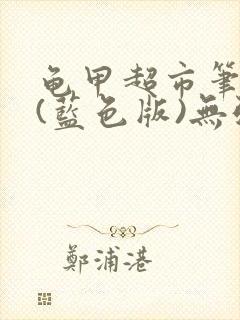 龟甲超市筆
(藍色版)無
鄭浦港